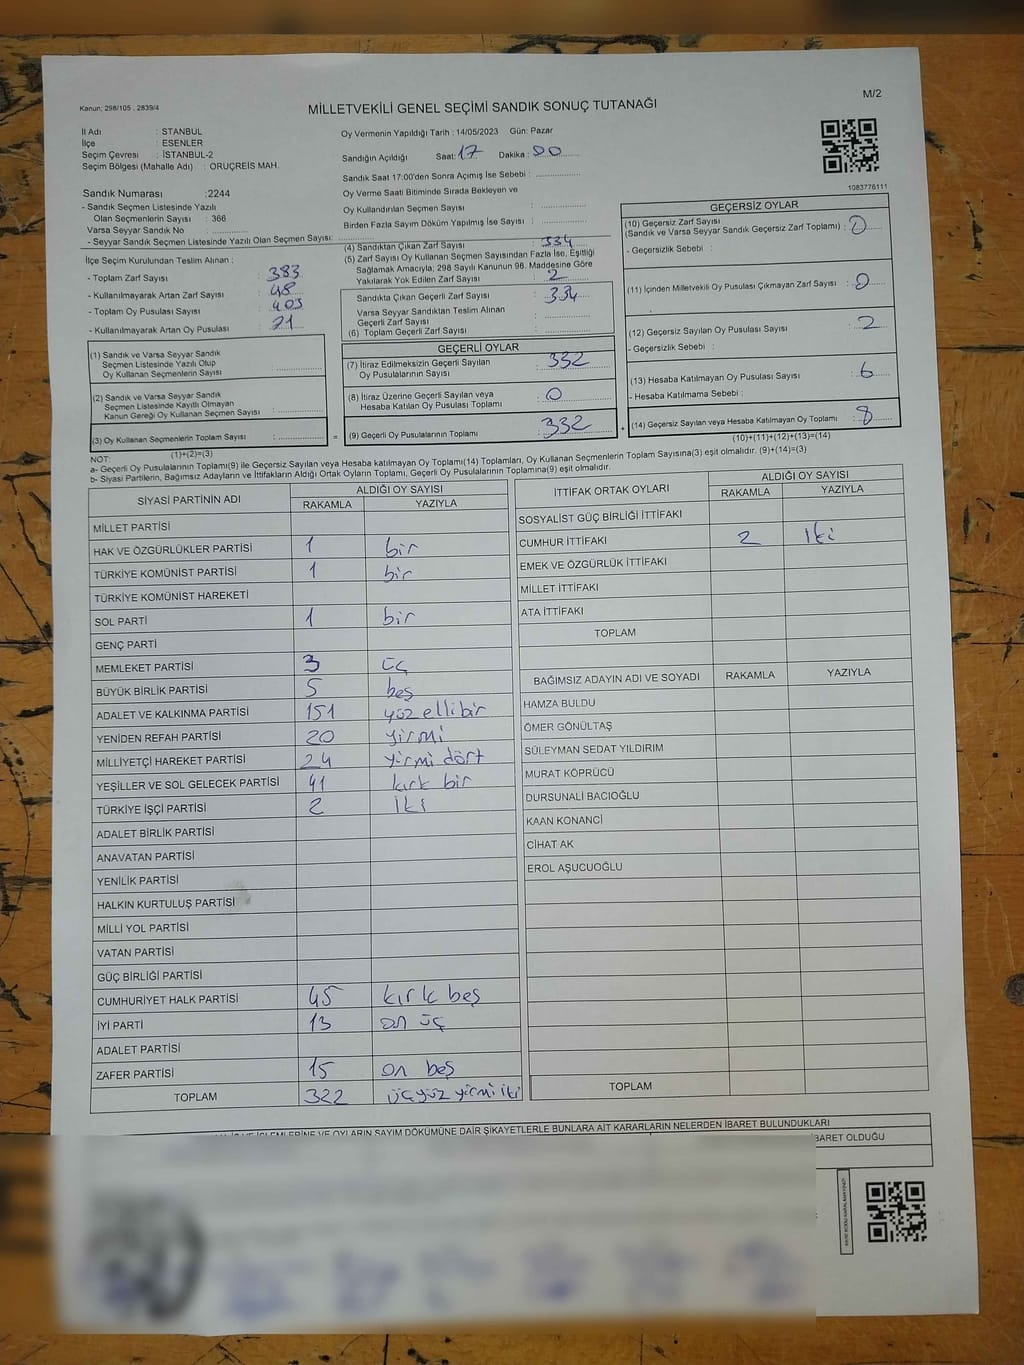 Kanun: 298/105 , 2839/4
MİLLETVEKİLİ GENEL SEÇİMİ SANDIK SONUÇ TUTANAĞI
M/2
İl Adı : STANBUL
İlçe : ESENLER
Seçim Çevresi : İSTANBUL-2
Seçim Bölgesi (Mahalle Adı) : ORUÇREİS MAH.
Sandık Numarası :2244
- Sandık Seçmen Listesinde Yazılı
Olan Seçmenlerin Sayısı : 366
Varsa Seyyar Sandık No :
- Seyyar Sandık Seçmen Listesinde Yazılı Olan Seçmen Sayısı:
İlçe Seçim Kurulundan Teslim Alınan :
- Toplam Zarf Sayısı : 383
- Kullanılmayarak Artan Zarf Sayısı : 48
- Toplam Oy Pusulası Sayısı : 403
- Kullanılmayarak Artan Oy Pusulası : 21
(1) Sandık ve Varsa Seyyar Sandık
Seçmen Listesinde Yazılı Olup
Oy Kullanan Seçmenlerin Sayısı :
(2) Sandık ve Varsa Seyyar Sandık
Seçmen Listesinde Kayıtlı Olmayan
Kanun Gereği Oy Kullanan Seçmen Sayısı :
(3) Oy Kullanan Seçmenlerin Toplam Sayısı :
(1)+(2)=(3)
Oy Vermenin Yapıldığı Tarih : 14/05/2023 Gün: Pazar
Sandığın Açıldığı Saat: 17 Dakika : 00
Sandık Saat 17:00'den Sonra Açımış İse Sebebi :
Oy Verme Saati Bitiminde Sırada Bekleyen ve
Oy Kullandırılan Seçmen Sayısı :
Birden Fazla Sayım Döküm Yapılmış İse Sayısı :
(4) Sandıktan Çıkan Zarf Sayısı : 334
(5) Zarf Sayısı Oy Kullanan Seçmen Sayısından Fazla İse, Eşitliği
Sağlamak Amacıyla; 298 Sayılı Kanunun 98. Maddesine Göre
Yakılarak Yok Edilen Zarf Sayısı : 2
Sandıkta Çıkan Geçerli Zarf Sayısı : 334
Varsa Seyyar Sandıktan Teslim Alınan
Geçerli Zarf Sayısı :
(6) Toplam Geçerli Zarf Sayısı :
GEÇERLİ OYLAR
(7) İtiraz Edilmeksizin Geçerli Sayılan
Oy Pusulalarının Sayısı : 332
(8) İtiraz Üzerine Geçerli Sayılan veya
Hesaba Katılan Oy Pusulası Toplamı : 0
= (9) Geçerli Oy Pusulalarının Toplamı : 332 +
1083776111
GEÇERSİZ OYLAR
(10) Geçersiz Zarf Sayısı
(Sandık ve Varsa Seyyar Sandık Geçersiz Zarf Toplamı) : 0
- Geçersizlik Sebebi :
(11) İçinden Milletvekili Oy Pusulası Çıkmayan Zarf Sayısı : 0
(12) Geçersiz Sayılan Oy Pusulası Sayısı : 2
- Geçersizlik Sebebi :
(13) Hesaba Katılmayan Oy Pusulası Sayısı : 6
- Hesaba Katılmama Sebebi :
(14) Geçersiz Sayılan veya Hesaba Katılmayan Oy Toplamı : 8
(10)+(11)+(12)+(13)=(14)
NOT:
a- Geçerli Oy Pusulalarının Toplamı(9) ile Geçersiz Sayılan veya Hesaba katılmayan Oy Toplamı(14) Toplamları, Oy Kullanan Seçmenlerin Toplam Sayısına(3) eşit olmalıdır. (9)+(14)=(3)
b- Siyasi Partilerin, Bağımsız Adayların ve İttifakların Aldığı Ortak Oyların Toplamı, Geçerli Oy Pusulalarının Toplamına(9) eşit olmalıdır.
SİYASİ PARTİNİN ADI ALDIĞI OY SAYISI
RAKAMLA YAZIYLA
MİLLET PARTİSİ
HAK VE ÖZGÜRLÜKLER PARTİSİ 1 bir
TÜRKİYE KOMÜNİST PARTİSİ 1 bir
TÜRKİYE KOMÜNİST HAREKETİ
SOL PARTİ 1 bir
GENÇ PARTİ
MEMLEKET PARTİSİ 3 üç
BÜYÜK BİRLİK PARTİSİ 5 beş
ADALET VE KALKINMA PARTİSİ 151 yüz ellibir
YENİDEN REFAH PARTİSİ 20 yirmi
MİLLİYETÇİ HAREKET PARTİSİ 24 yirmi dört
YEŞİLLER VE SOL GELECEK PARTİSİ 41 kırk bir
TÜRKİYE İŞÇİ PARTİSİ 2 iki
ADALET BİRLİK PARTİSİ
ANAVATAN PARTİSİ
YENİLİK PARTİSİ
HALKIN KURTULUŞ PARTİSİ
MİLLİ YOL PARTİSİ
VATAN PARTİSİ
GÜÇ BİRLİĞİ PARTİSİ
CUMHURİYET HALK PARTİSİ 45 kırk beş
İYİ PARTİ 13 on üç
ADALET PARTİSİ
ZAFER PARTİSİ 15 on beş
TOPLAM 322 üçyüz yirmi iki
İTTİFAK ORTAK OYLARI ALDIĞI OY SAYISI
RAKAMLA YAZIYLA
SOSYALİST GÜÇ BİRLİĞİ İTTİFAKI
CUMHUR İTTİFAKI 2 iki
EMEK VE ÖZGÜRLÜK İTTİFAKI
MİLLET İTTİFAKI
ATA İTTİFAKI
TOPLAM
BAĞIMSIZ ADAYIN ADI VE SOYADI RAKAMLA YAZIYLA
HAMZA BULDU
ÖMER GÖNÜLTAŞ
SÜLEYMAN SEDAT YILDIRIM
MURAT KÖPRÜCÜ
DURSUNALİ BACIOĞLU
KAAN KONANCİ
CİHAT AK
EROL AŞUCUOĞLU
TOPLAM
VE OYLARIN SAYIM DÖKÜMÜNE DAİR ŞİKAYETLERLE BUNLARA AİT KARARLARIN NELERDEN İBARET BULUNDUKLARI
İBARET OLDUĞU